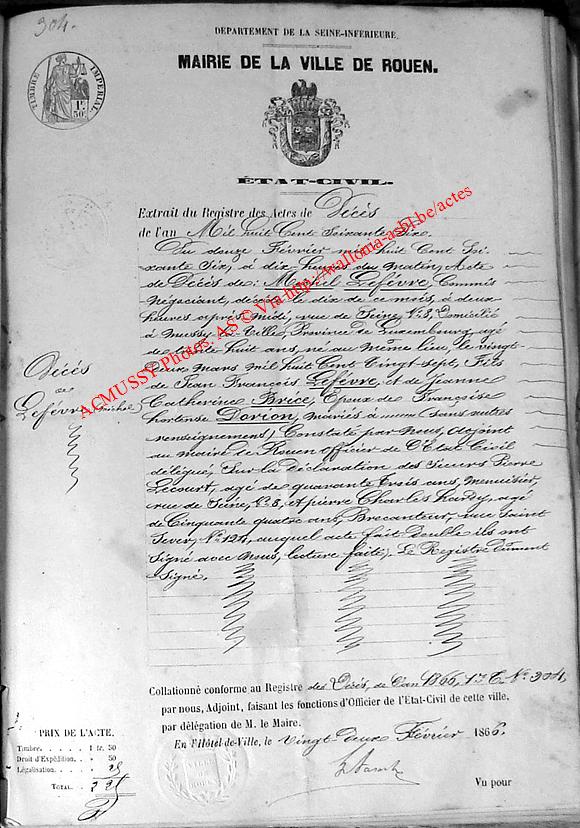 304.
DEPARTEMENT DE LA SEINE-INFERIEURE.
MAIRIE DE LA VILLE DE ROUEN.
TIMBRE IMPERIAL
1F.
50c
ÉTAT-CIVIL.
Extrait du Registre des Actes de Décès
de l'an Mil huit Cent Soixante Six.
Du douze Février mil huit Cent Soi-
xante Six, à dix heures du matin, Acte
de Décès de Michel Lefèvre, Commis
négociant, décédé le dix de ce mois, à deux
heures après midi, rue de Seine, N° 8, Domicilié
à Mussy-la-Ville, Province de Luxembourg, agé
de trente huit ans, né au même lieu, le vingt
Deux mars mil huit Cent Vingt sept, Fils
de Jean François Lefèvre, et de Jeanne
Catherine Brice, Epoux de Françoise
hortense Dorion, mariés à (sans autres
renseignements) Constaté par Nous, adjoint
au maire de Rouen officier de l'Etat Civil
délégué, Sur la Déclaration des Sieurs Pierre
Lecourt, agé de quarante trois ans, menuisier,
rue de Seine, N° 8, et pierre Charles hardy, agé
de Cinquante quatre ans, Brocanteur, rue Saint
Sever, N° 124, auquel acte fait Double ils ont
Signé avec Nous, lecture faite. Le Registre Dûment
Signé.
Décès
de
Lefèvre, Michel
ACMUSSY Photos. AS © Via http://wallonia-asbl.be/actes
Collationné conforme au Registre des Décès, de l'an 1866, N° 304,
par nous, Adjoint, faisant les fonctions d'Officier de l'Etat-Civil de cette ville,
par délégation de M. le Maire.
En l'Hôtel-de-Ville, le Vingt Deux Février 1866.
PRIX DE L'ACTE.
Timbre. . . . . 1 fr. 50
Droit d'Expédition. . » 50
Légalisation. . . . . 25
TOTAL. . 2 25
Vu pour